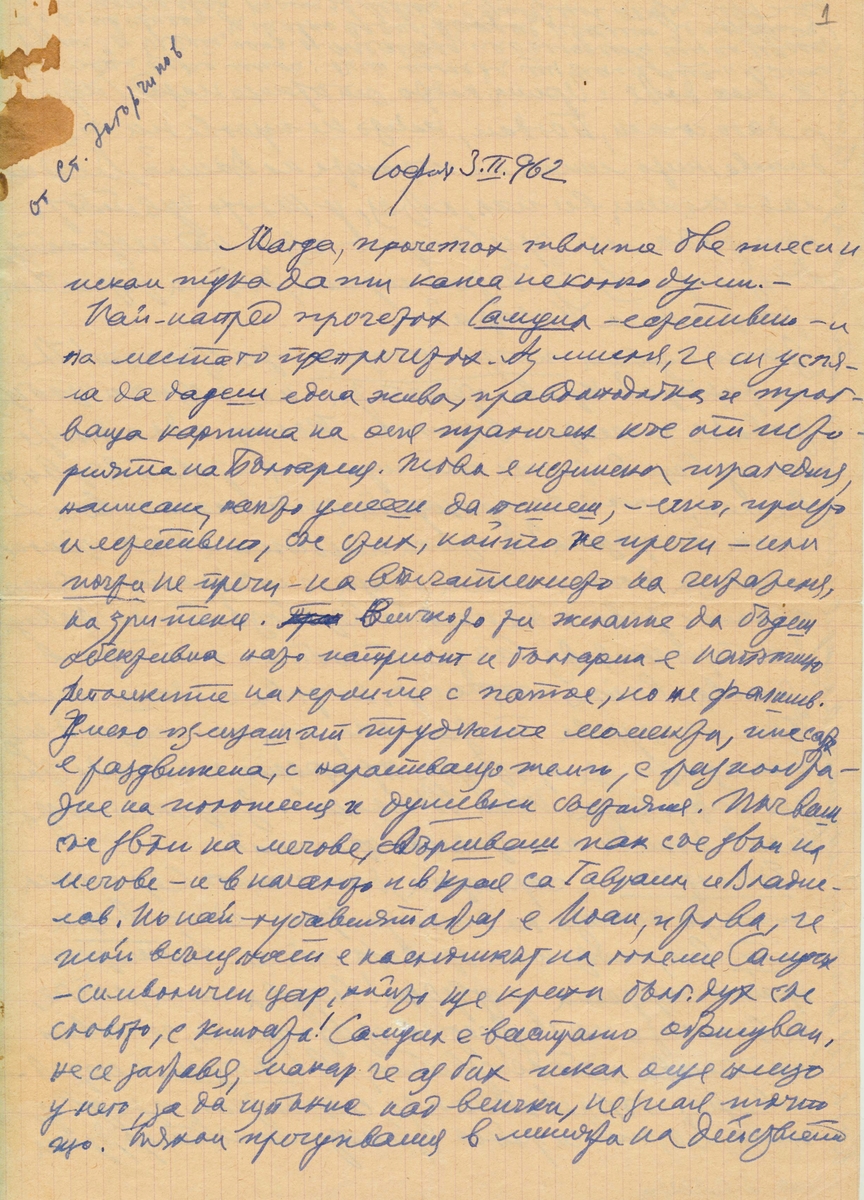 1
от Ст. Загорчинов
София 3.II.962
Магда, прочетох твоите две пиеси и
искам тука да ти кажа неколко думи. –
Най-напред прочетох Самуил – – и
на места го препрочетох. Аз мисля, че си успя-
ла да дадеш една жива, правдоподобна и трог-
ваща картина на оня трагичен къс от исто-
рията на България. Това е истинска трагедия,
написана, както умееш да пишеш, – ясно, просто
и , със стих, който не пречи – или
почти не пречи – на впечатлението на читателя,
на зрителя. Всичкото ти желание да бъдеш
обективна като патриот и българин е
на героите с патос, но не фалшив.
Умело излизаш от трудните моменти, пиесата
е раздвижена, с нарастващо , с разнообра-
зие на положения и душевни състояния. Почваш
със звън на мечове, свършваш пак със звън на
мечове – и в началото и в края са Гавраил и Владис-
лав. Но най-хубавият образ е Иоан, и това, че
той всъщност е наследникът на големия Самуил
– символичен цар, който ще крепи бълг. дух със
словото, с книгата! Самуил е обрисуван,
не се забравя, макар че аз бих искал още нещо
у него, за да изпъкне над всички, не зная точно
що. Някои проучвания в на действието